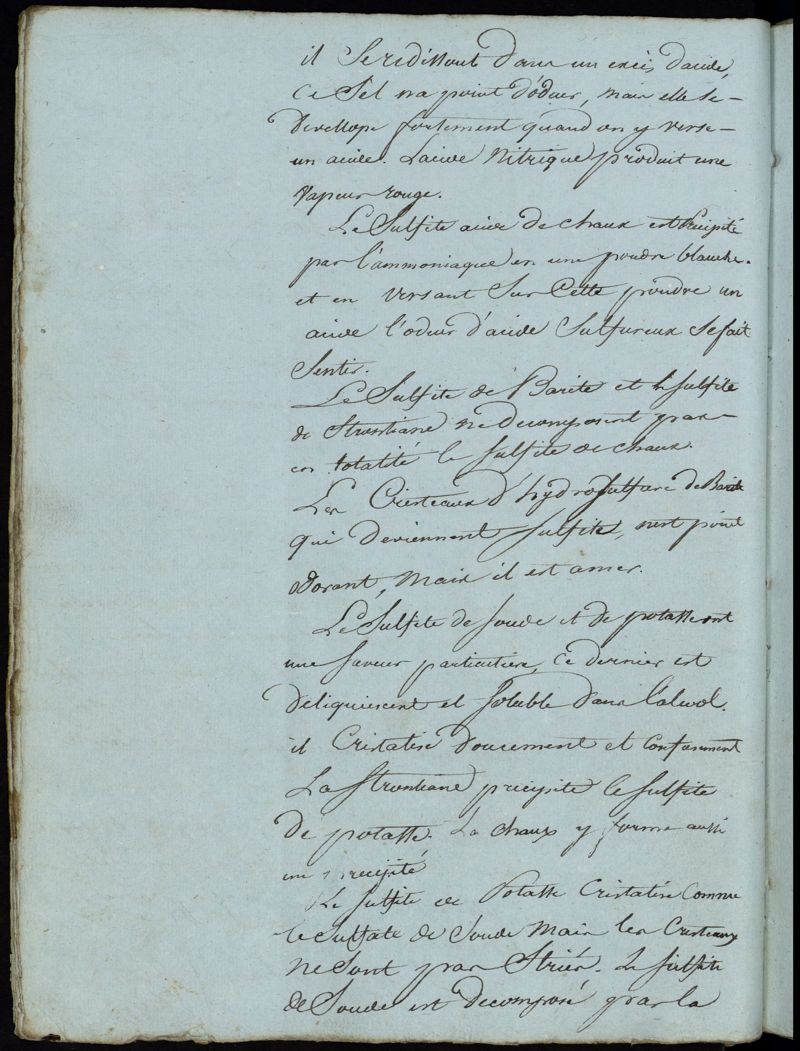 il Seredissout Dans un excès d'acide,
Ce Sel n'a point d'odeur, mais elle se
Devellope fortement quand on y verse
un acide. L'acide Nitrique produit une
Vapeur rouge.
Le Sulfite acide De chaux est Précipité
par l'ammoniaque en une poudre blanche.
et en versant Sur Cette poudre un
acide l'odeur d'acide Sulfureux Se fait
Sentir.
Le Sulfite de Barite et le sulfite
de Strontiane ne Decomposent pas
en totalité le sulfite de chaux.
Les Cristeaux d'hydrosulfure de Barite
qui Deviennent sulfites, n'est point
odorant, Mais il est amer.
Le Sulfite de soude et de potasse ont
une saveur particuliere, Ce dernier est
Deliquescent et soluble Dans l'alcool.
il Cristalise Doucement et Confusement
La Strontiane précipite le sulfite
De potasse. La chaux y forme aussi
un précipité
Le sulfite de Potasse Cristalise Comme
le Sulfate de Soude Mais les Cristeaux
Ne Sont pas Striés. Le sulfite
de Soude est Decomposé par la